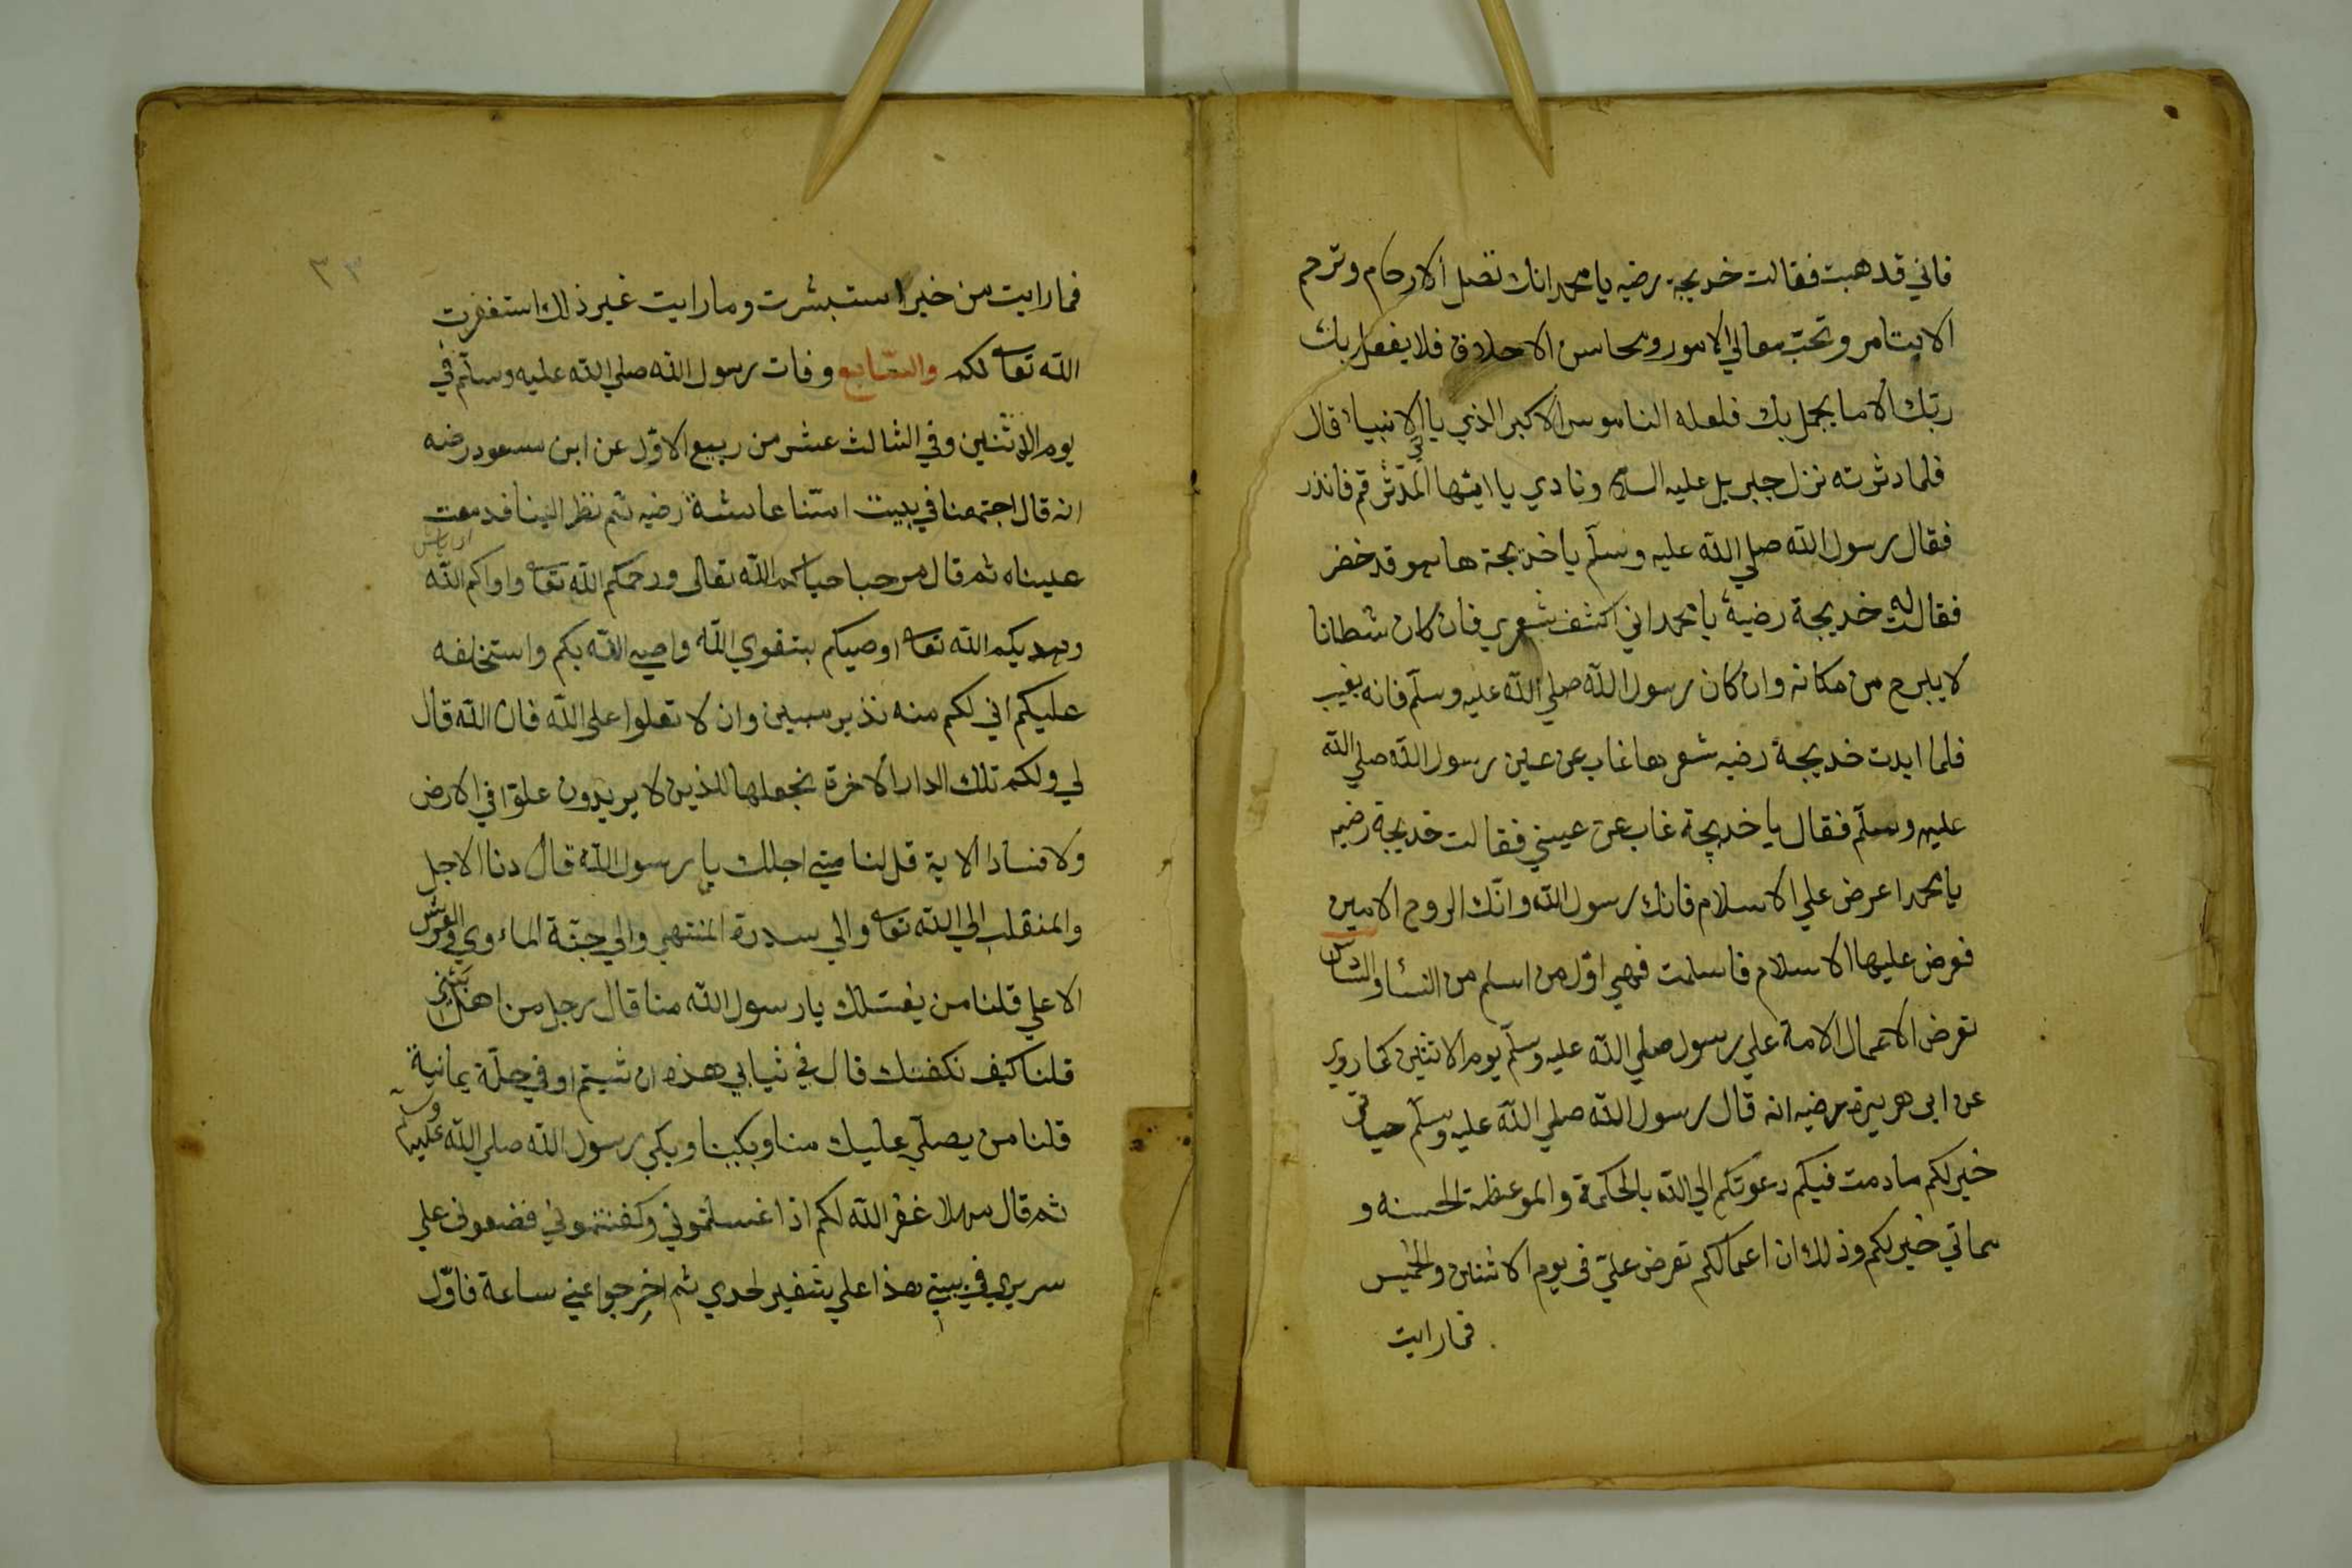 فاني قد هبت فقالت خديجة رضيه يا محمد انك تصل الارحام وترحم
الايتام وتحب معالي الامور ومحاسن الاخلاق فلا يفعل بك
ربّك الا ما يجمل بك فلعله الناموس الاكبر الذي ياتي الانبياء قال
فلما دثرته نزل جبريل عليه السلام ونادي يا ايتها المدّثر قم فانذر
فقال رسول الله صلي الله عليه وسلّم يا خديجة ها هو قد حضر
فقالت له خديجة رضية يا محمد اني اكشف شعري فان كان شطانا
لا يبرح من مكانه وان كان رسول الله صلي الله عليه وسلّم فانه يغيب
فلما ابدت خديجة رضيه شعرها غاب عن عين رسول الله صلي الله
عليه وسلّم فقال يا خديجة غاب عن عيني فقالت خديجة رضيه
يا محمد اعرض علي الاسلام فانك رسول الله وانّك الروح الامين
فعرض عليها الاسلام فاسلمت فهي اوّل من اسلم من النساء والسّادس
تعرض الاعمال الامة علي رسول صلي الله عليه وسلّم يوم الاثنين كما روي
عن ابي هريرة رضيه انه قال رسول الله صلي الله عليه وسلّم حياتي
خير لكم ما دمت فيكم دعوتكم الي الله بالحكمة والموعظة الحسنه و
مماتي خير لكم وذلك ان اعمالكم تعرض عليّ في يوم الاثنين والخميس
فما رايت
٣٣
فما رايت من خير استبشرت وما رايت غير ذلك استغفرت
الله تعا لكم والسّابع وفات رسول الله صلي الله عليه وسلّم في
يوم الاثنين وفي الثالث عشر من ربيع الاوّل عن ابن مسعود رضه
انه قال اجتمعنا في بيت امّنا عائشة رضيه ثم نظر الينا فدمعت
عيناه ثم قال مرحبا حياكم الله تعالى ورحمكم الله تعا واواكم الله
ويهديكم الله تعا اوصيكم بتقوي الله واوصي الله بكم واستخلفه
عليكم اني لكم منه نذير مبين وان لا تعلوا علي الله فان الله قال
لي ولكم تلك الدار الاخرة نجعلها للذين لا يريدون علوّا في الارض
ولا فسادا الاية قلنا متي اجلك يا رسول الله قال دنا الاجل
والمنقلب الي الله تعا والي سدرة المنتهي والي جنّة الماءوي والعرش
الاعلي قلنا من يغسلك يا رسول الله منا قال رجل من اهل بيتي
قلنا كيف نكفنك قال في ثيابي هذه ان شيتم او في حلّة يمانية
قلنا من يصلّي عليك منا وبكينا وبكي رسول الله صلي الله عليه وسلّم
ثم قال مهلا غفر الله لكم اذا غسلتموني وكفنتموني فضعوني علي
سريري في بيتي هذا علي شفير لحدي ثم اخرجوا عني ساعة فاوّل